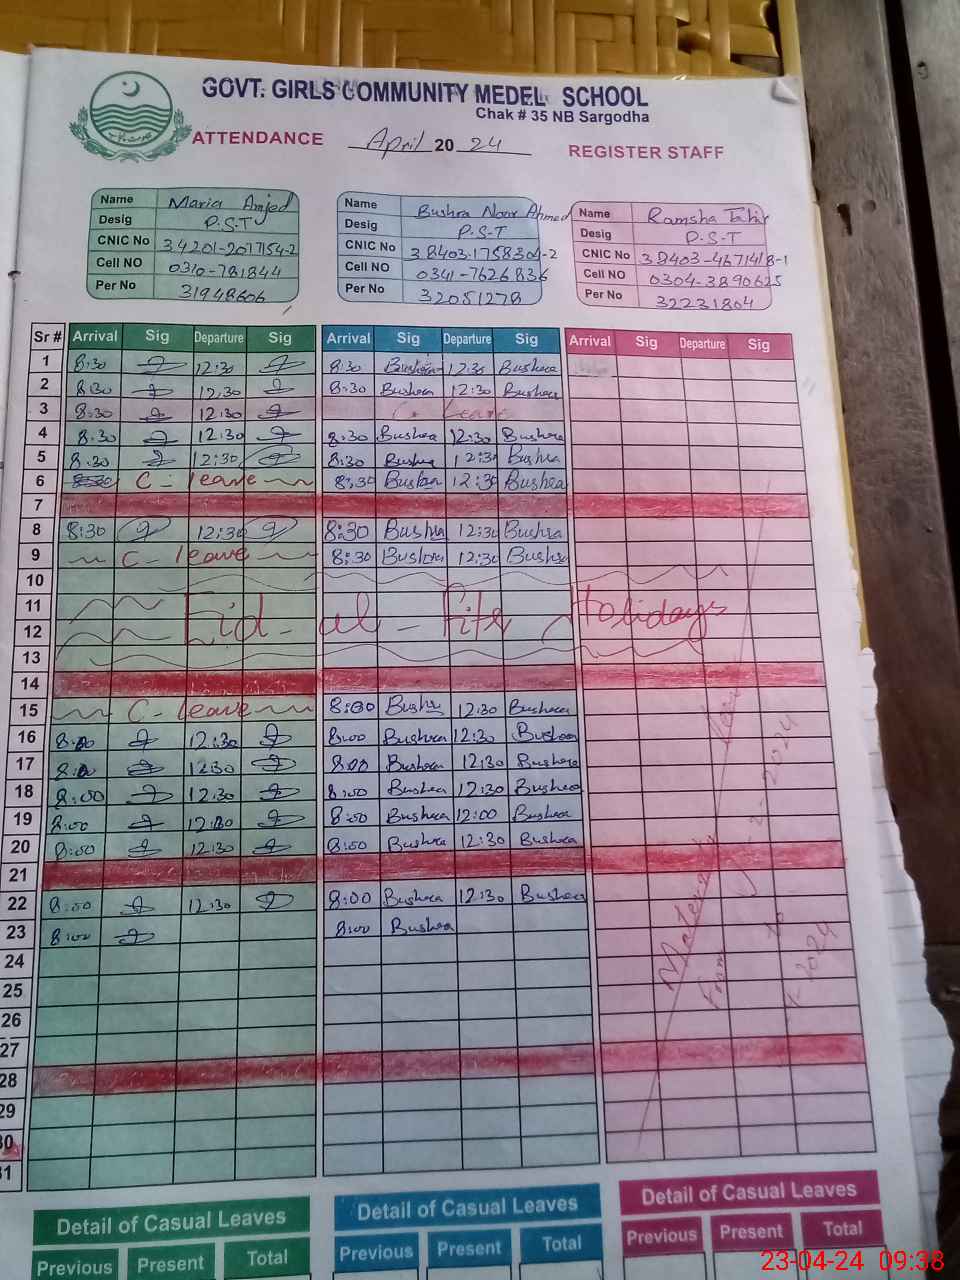 GOVT: GIRLS COMMUNITY MEDEL SCHOOL
Chak # 35 NB Sargodha
ATTENDANCE April 20 24 REGISTER STAFF
Name Maria Amjed
Desig P.S.T
CNIC No 34201-2017154-2
Cell NO 0310-781844
Per No 31948606
Name Bushra Noor Ahmed
Desig P.S.T
CNIC No 38403-1758304-2
Cell NO 0341-7626836
Per No 32051278
Name Ramsha Tahir
Desig P.S.T
CNIC No 38403-4671418-1
Cell NO 0304-3890625
Per No 32231804
Sr # Arrival Sig Departure Sig Arrival Sig Departure Sig Arrival Sig Departure Sig
1 8:30 12:30 8:30 Bushra 12:30 Bushra
2 8:30 12:30 8:30 Bushra 12:30 Bushra
3 8:30 12:30 C. Leave
4 8:30 12:30 8:30 Bushra 12:30 Bushra
5 8:30 12:30 8:30 Bushra 12:30 Bushra
6 8:30 C - leave 8:30 Bushra 12:30 Bushra
7
8 8:30 12:30 8:30 Bushra 12:30 Bushra
9 C - leave 8:30 Bushra 12:30 Bushra
10
11 Eid - al - Fitr Holidays
12
13
14
15 C - leave 8:00 Bushra 12:30 Bushra
16 8:00 12:30 8:00 Bushra 12:30 Bushra
17 8:00 12:30 8:00 Bushra 12:30 Bushra
18 8:00 12:30 8:00 Bushra 12:30 Bushra
19 8:00 12:30 8:00 Bushra 12:00 Bushra
20 8:00 12:30 8:00 Bushra 12:30 Bushra
21
22 8:00 12:30 8:00 Bushra 12:30 Bushra
23 8:00 8:00 Bushra
24
25
26
27
28
29
30
31
Maternity leave
From 2-2024
to
2024
Detail of Casual Leaves Detail of Casual Leaves Detail of Casual Leaves
Previous Present Total Previous Present Total Previous Present Total
23-04-24 09:38